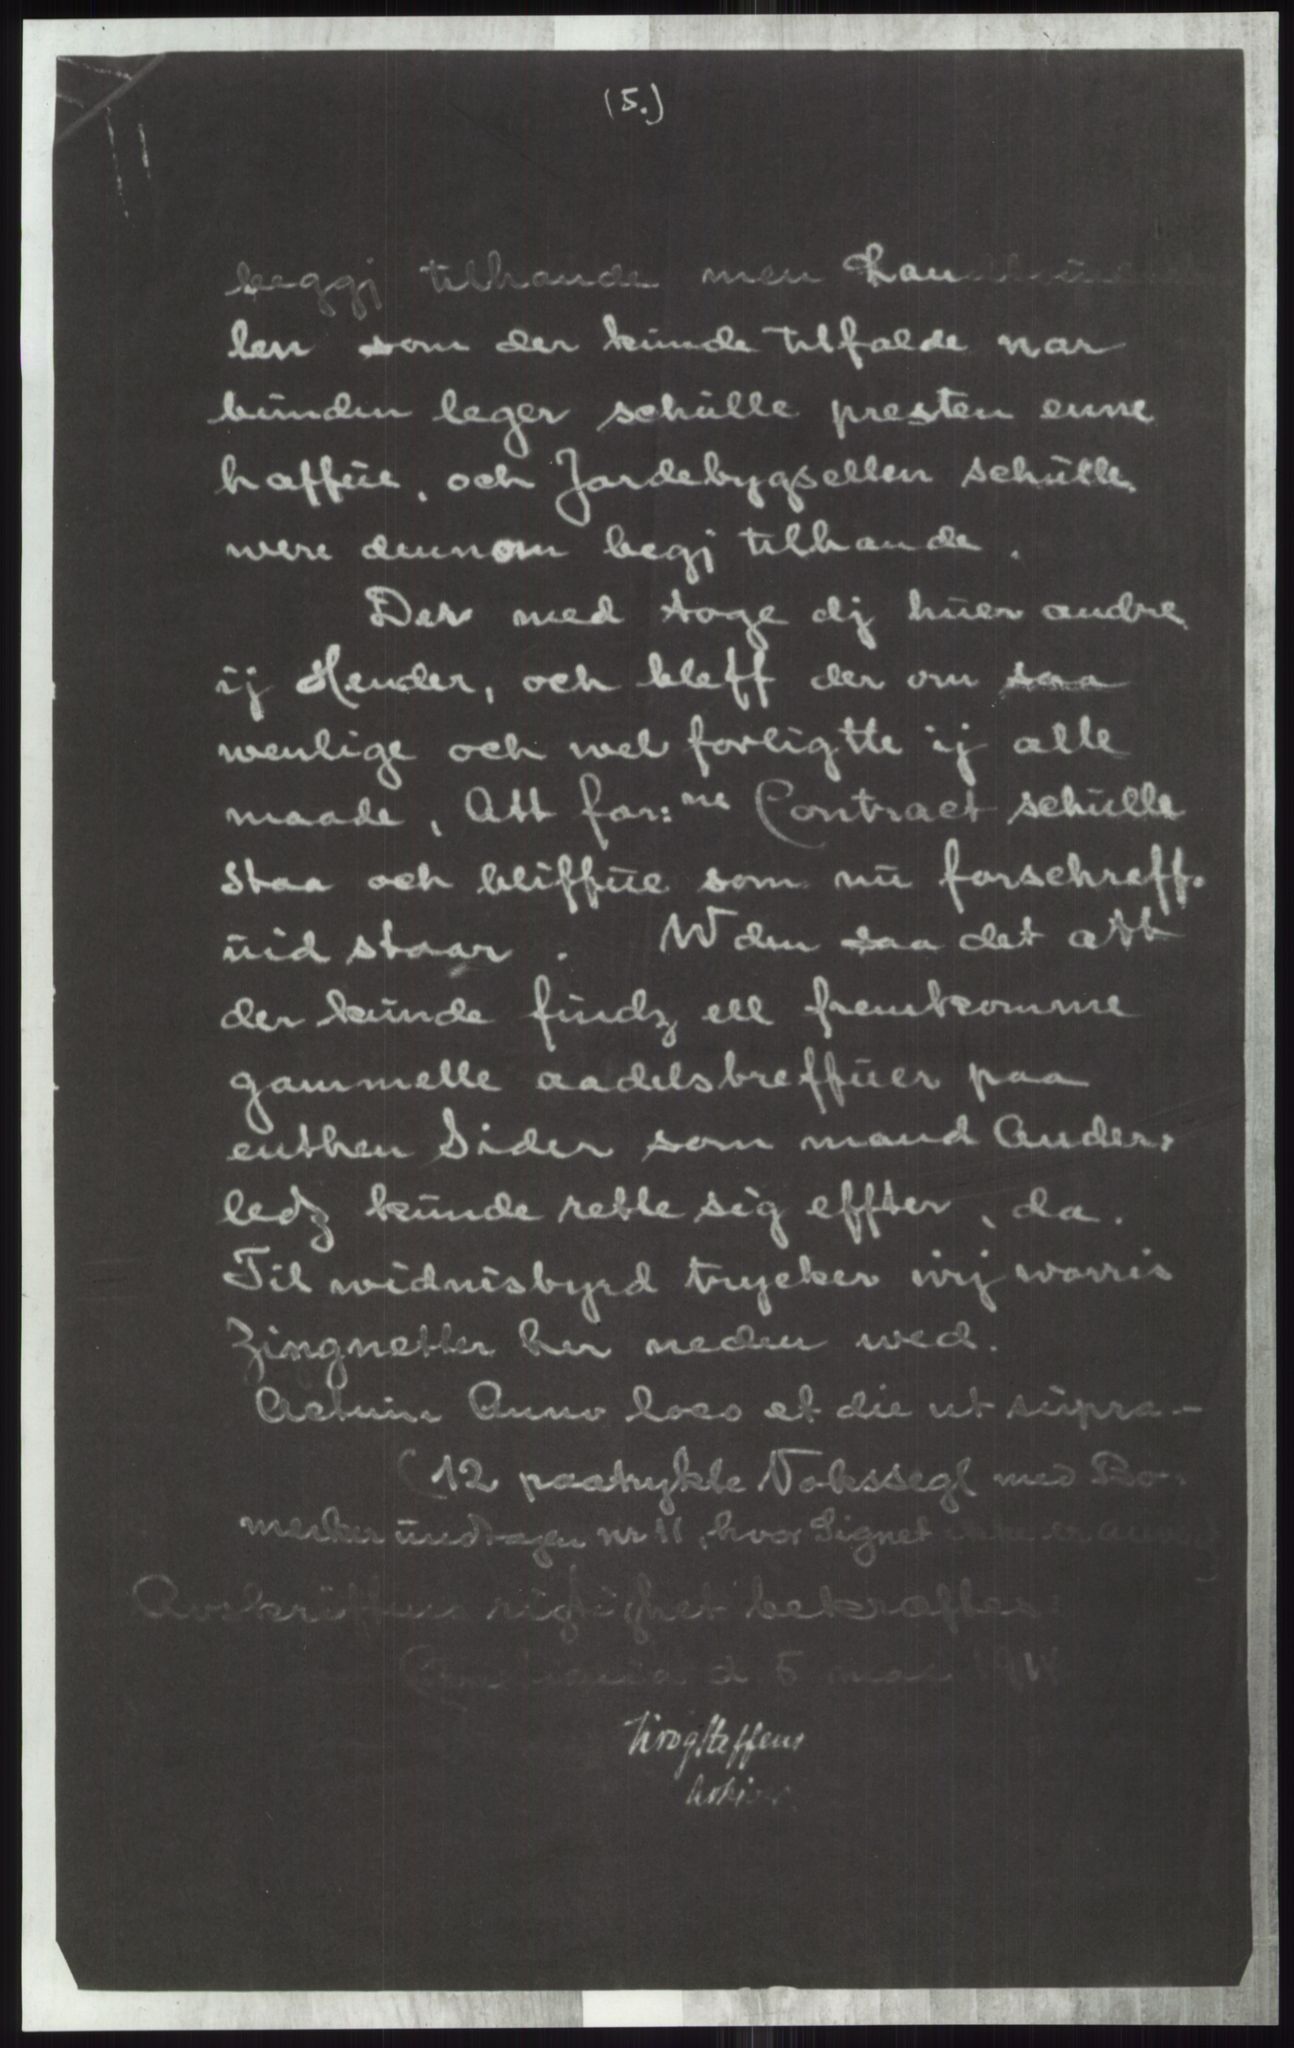 (5.)
beggj tilhande men
len som der kunde tilfalde nar
bunden leger schulle presten enne
haffue, och Jordebygsellen schulle
were dennom begj tilhande.
Der med toge dj huer andre
ij Hender, och bleff der om saa
wenlige och wel forligtte ij alle
maade, Att for:ne Contract schulle
staa och bliffue som nu forschreff.
uid staar. Wden saa det att
der kunde findz ell fremkomme
gammelle aadelsbreffuer paa
enthen Sider som mand Ander,
ledz kunde rette sig effter, da.
Til widnisbyrd trycker wij worris
Zingnetter her neden wed.
Actum Anno loco et die ut supra -
(12 paatrykte Vokssegl med Bo-
merker undtagen nr 11, hvor Signet ikke er
Avskriftens rigtighet bekræftes:
d. 5 mai
KrogSteffens